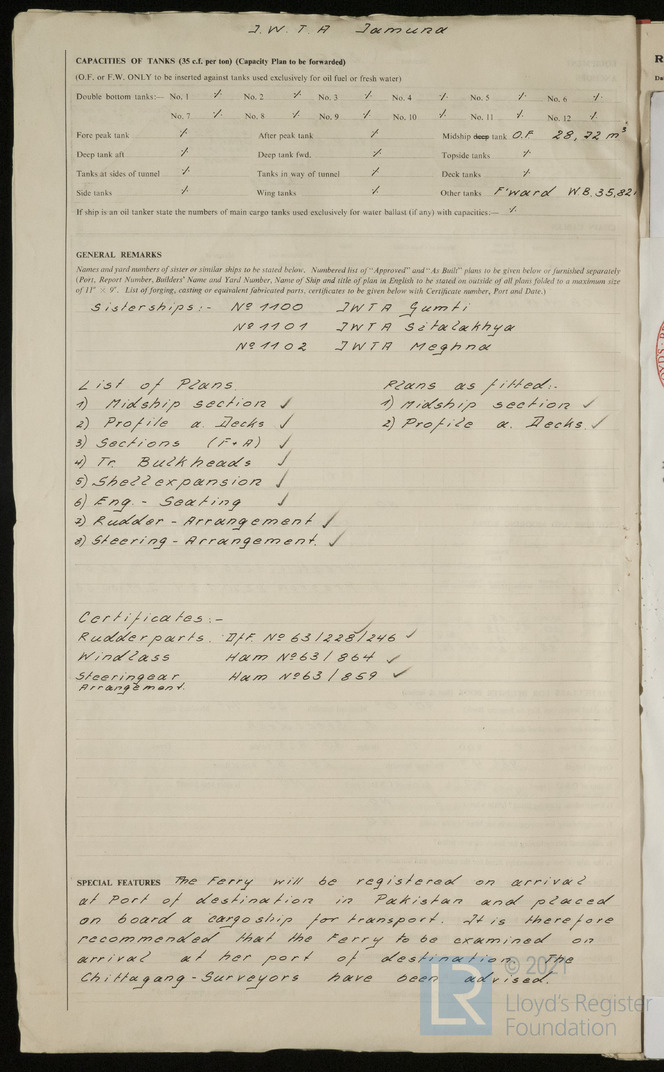 I.W.T.A Jamuna
CAPACITIES OF TANKS (35 c.f. per ton) (Capacity Plan to be forwarded)
(O.F. or F.W. ONLY to be inserted against tanks used exclusively for oil fuel or fresh water)
Double bottom tanks:— No. 1 ⁒ No. 2 ⁒ No. 3 ⁒ No. 4 ⁒ No. 5 ⁒ No. 6 ⁒
No. 7 ⁒ No. 8 ⁒ No. 9 ⁒ No. 10 ⁒ No. 11 ⁒ No. 12 ⁒
Fore peak tank ⁒ After peak tank ⁒ Midship deep tank O.F 28,72 m³
Deep tank aft ⁒ Deep tank fwd. ⁒ Topside tanks ⁒
Tanks at sides of tunnel ⁒ Tanks in way of tunnel ⁒ Deck tanks ⁒
Side tanks ⁒ Wing tanks ⁒ Other tanks F'ward W.B. 35,82
If ship is an oil tanker state the numbers of main cargo tanks used exclusively for water ballast (if any) with capacities:— ⁒
GENERAL REMARKS
Names and yard numbers of sister or similar ships to be stated below. Numbered list of "Approved" and "As Built" plans to be given below or furnished separately
(Port, Report Number, Builders' Name and Yard Number, Name of Ship and title of plan in English to be stated on outside of all plans folded to a maximum size
of 11" × 9". List of forging, casting or equivalent fabricated parts, certificates to be given below with Certificate number, Port and Date.)
Sisterships:- Nº 1100 IWTA Gumti
Nº 1101 IWTA Sitalakhya
Nº 1102 IWTA Meghna
List of Plans. Plans as fitted:-
1) Midship section ✓ 1) Midship section ✓
2) Profile a. Decks ✓ 2) Profile a. Decks ✓
3) Sections (F+A) ✓
4) Tr. Bulkheads ✓
5) Shell expansion ✓
6) Eng.- Seating ✓
7) Rudder - Arrangement ✓
8) Steering - Arrangement. ✓
Certificates:-
Rudderparts. Dff. Nº 63/228/246 ✓
Windlass Ham Nº 63/864 ✓
Steeringear Ham Nº 63/859 ✓
Arrangement.
SPECIAL FEATURES The Ferry will be registered on arrival
at Port of destination in Pakistan and placed
on board a cargoship for transport. It is therefore
recommended that the Ferry to be examined on
arrival at her port of destination. The
Chittagang-Surveyors have been advised.
LR © 2021
Lloyd's Register
Foundation